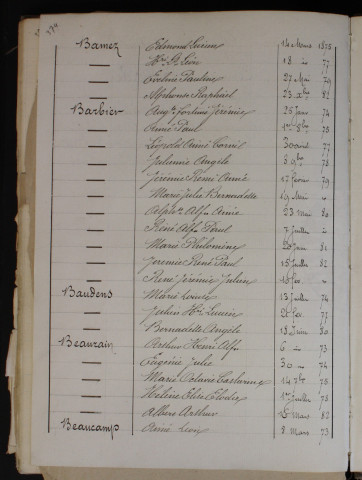 174
Bamez Edmond Lucien 14 Mars 1875
— Hri St Léon 18 " 77
— Eveline Pauline 27 Mai 79
— Alphonse Raphaël 23 xbre 82
Barbier Augte Fortuné Jérémie 25 Janv 74
— Aimé Paul 75
— Léopold Aimé 30 août 77
— Julienne Angèle 5 9bre 78
— Jérémie Rémi Aimé 17 févr 79
— Marie Julie Bernadette 19 Mai "
— Alphse Alfd Aimé 23 Mai 80
— René Alfd Paul 7 Juillet "
— Marie Philomène 20 Janv 81
— Jérémie René Paul 15 Juillet 82
— René Jérémie Julien 16 "
Baudens Marie Louise 13 Juillet 74
— Julien Hri Lucien 75
— Bernadette Angèle 18 Juin 80
Beaurain Arthur Henri Alfd 6 " 73
— Eugénie Julie 30 " 74
— Marie Octavie 14 7bre 75
— Hélène Elise Elodie 1er Juillet 78
— Albert Arthur Mars 82
Beaucamp Aimé 8 Mars 73